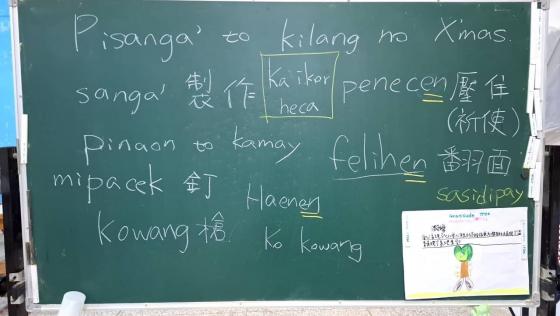 Pisanga' to kilang no X'mas.
sanga' 製作
ka'ikor
heca
penecen 壓住
(祈使)
pinaon to kamay
felihen 翻面
mipacek 釘
Haenen
sasidipay
kowang 槍
ko kowang
Gratitude Tree